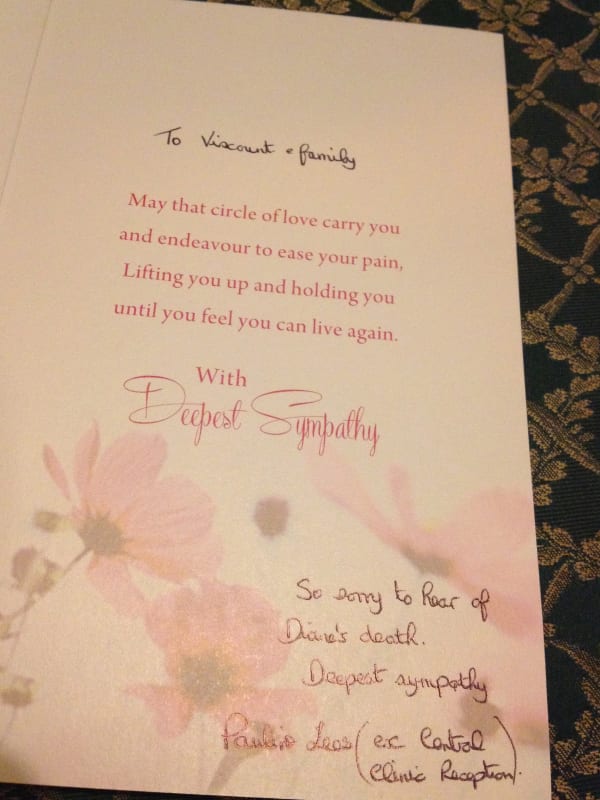 To Viscount & family
May that circle of love carry you
and endeavour to ease your pain,
Lifting you up and holding you
until you feel you can live again.
With
Deepest Sympathy
So sorry to hear of
Diane's death.
Deepest sympathy
(ex Central
Clinic Reception).